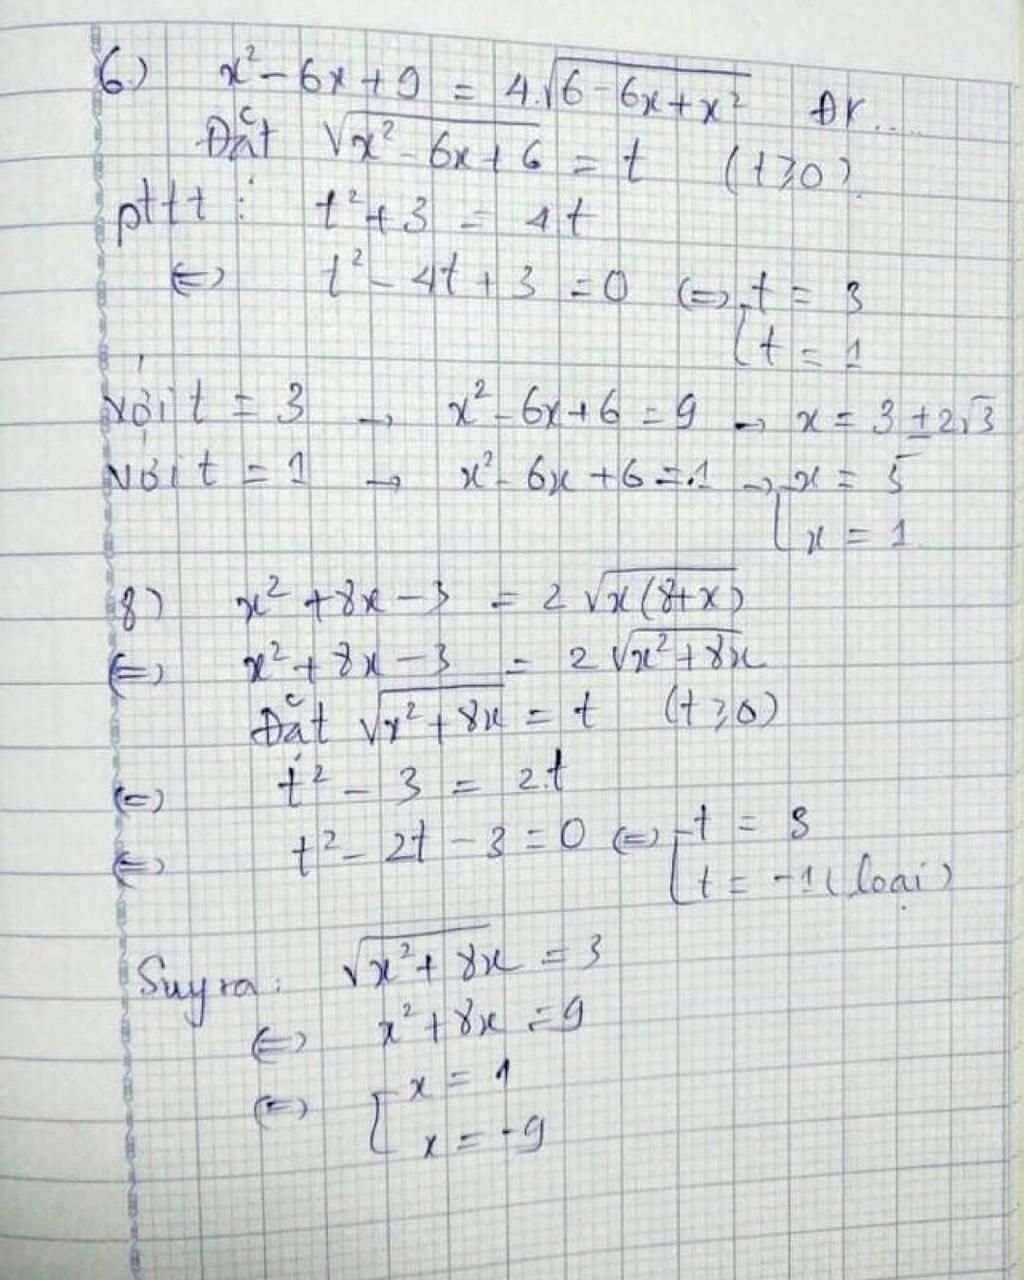 6) x² - 6x + 9 = 4.√(6 - 6x + x²) ĐK.....
Đặt √(x² - 6x + 6) = t (t ≥ 0)
pttt : t² + 3 = 4t
⇔ t² - 4t + 3 = 0 ⇔ [t = 3
[t = 1
Với t = 3 → x² - 6x + 6 = 9 → x = 3 ± 2√3
Với t = 1 → x² - 6x + 6 = 1 → [x = 5
[x = 1
8) x² + 8x - 3 = 2√(x(8+x))
⇔ x² + 8x - 3 = 2√(x² + 8x)
Đặt √(x² + 8x) = t (t ≥ 0)
⇔ t² - 3 = 2.t
⇔ t² - 2t - 3 = 0 ⇔ [t = 3
[t = -1 (loại)
Suy ra: √(x² + 8x) = 3
⇔ x² + 8x = 9
⇔ [x = 1
[x = -9